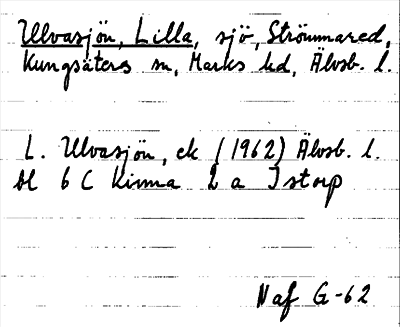 Ulvasjön, Lilla, sjö, Strömmared,
Kungsäters sn, Marks hd, Älvsb. l.
L. Ulvasjön, ek (1962) Älvsb. l.
bl 6 C Kinna 2 a Istorp
Naf G-62